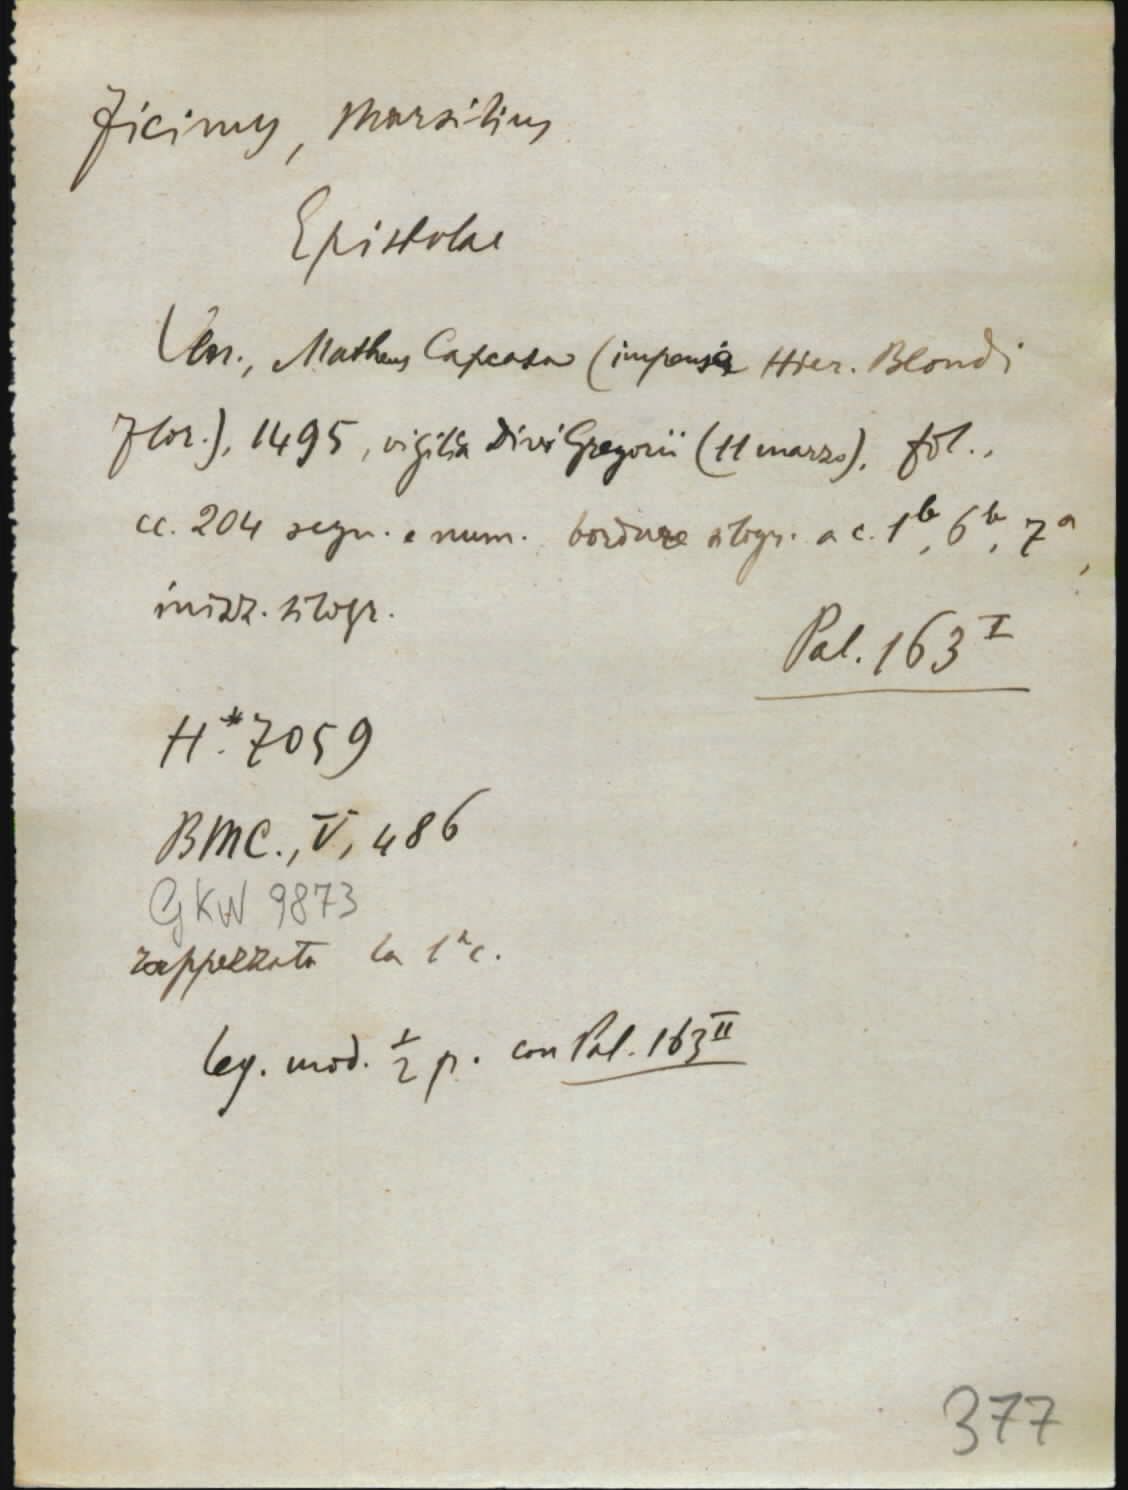 Ficinus, Marsilius
Epistolae
Ven., Matheus Capcasa (impensis Hier. Blondi
Flor.), 1495, vigilia Divi Gregorii (11 marzo), fol.,
cc. 204 segn. e num. bordure silogr. a c. 1b, 6b, 7a,
inizz. silogr.
Pal. 163 I
H.* 7059
BMC., V, 486
GKW 9873
rappezzata la 1a c.
leg. mod. 1/2 p. con Pal. 163 II
377